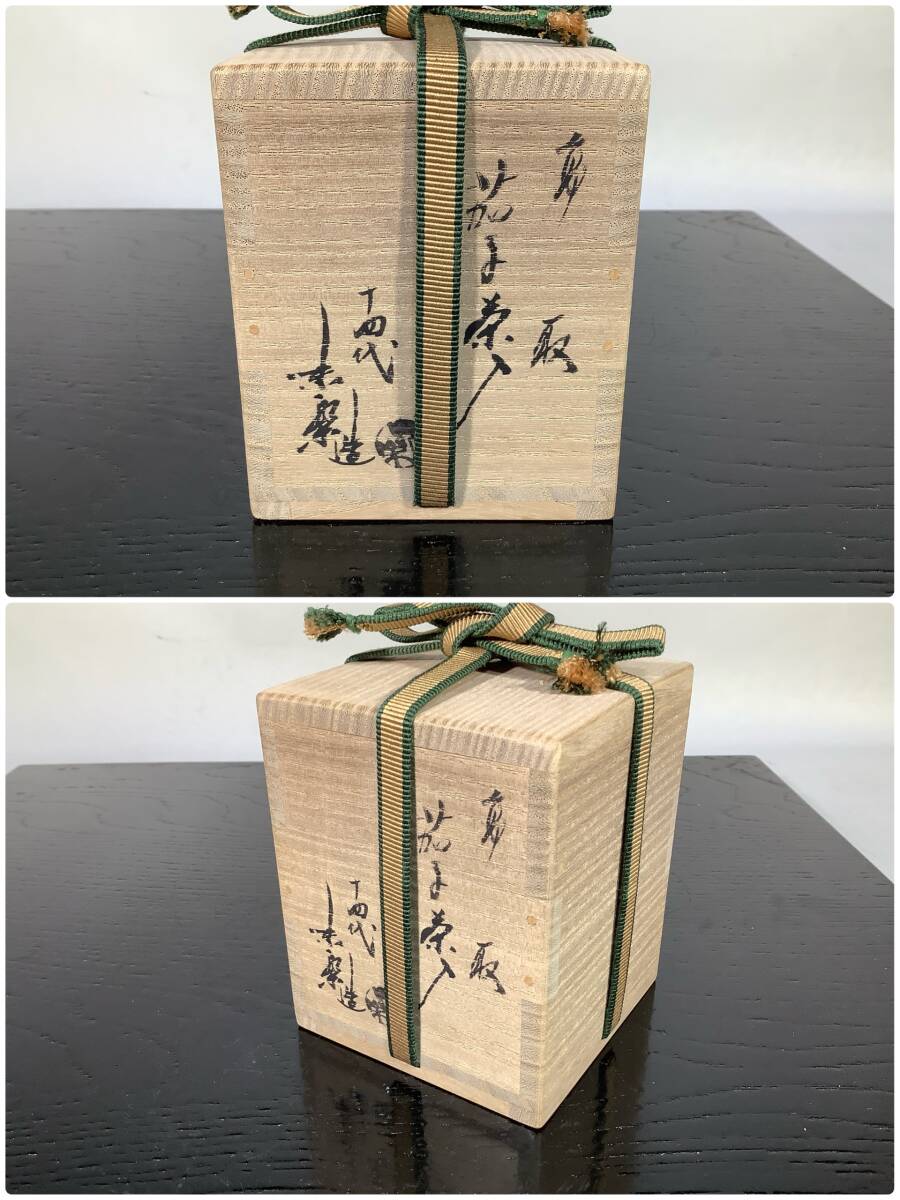 高取
茄子茶入
十四代
味楽造
高取
茄子茶入
十四代
味楽造